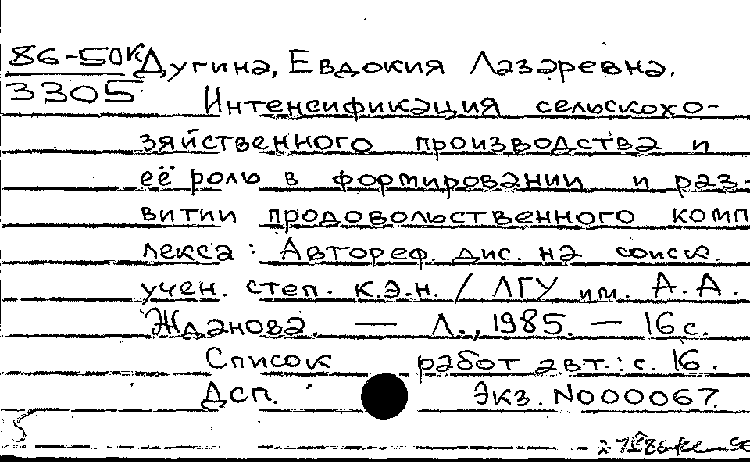 86-50к Дугина, Евдокия Лазаревна.
3305
Интенсификация сельскохо-
зяйственного производства и
её роль в формировании и раз-
витии продовольственного комп
лекса: Автореф. дис. на соиск.
учен. степ. к.э.н. / ЛГУ им. А.А.
Жданова. — Л., 1985. — 16 с.
Список работ авт.: с. 16.
Дсп. Экз. N000067